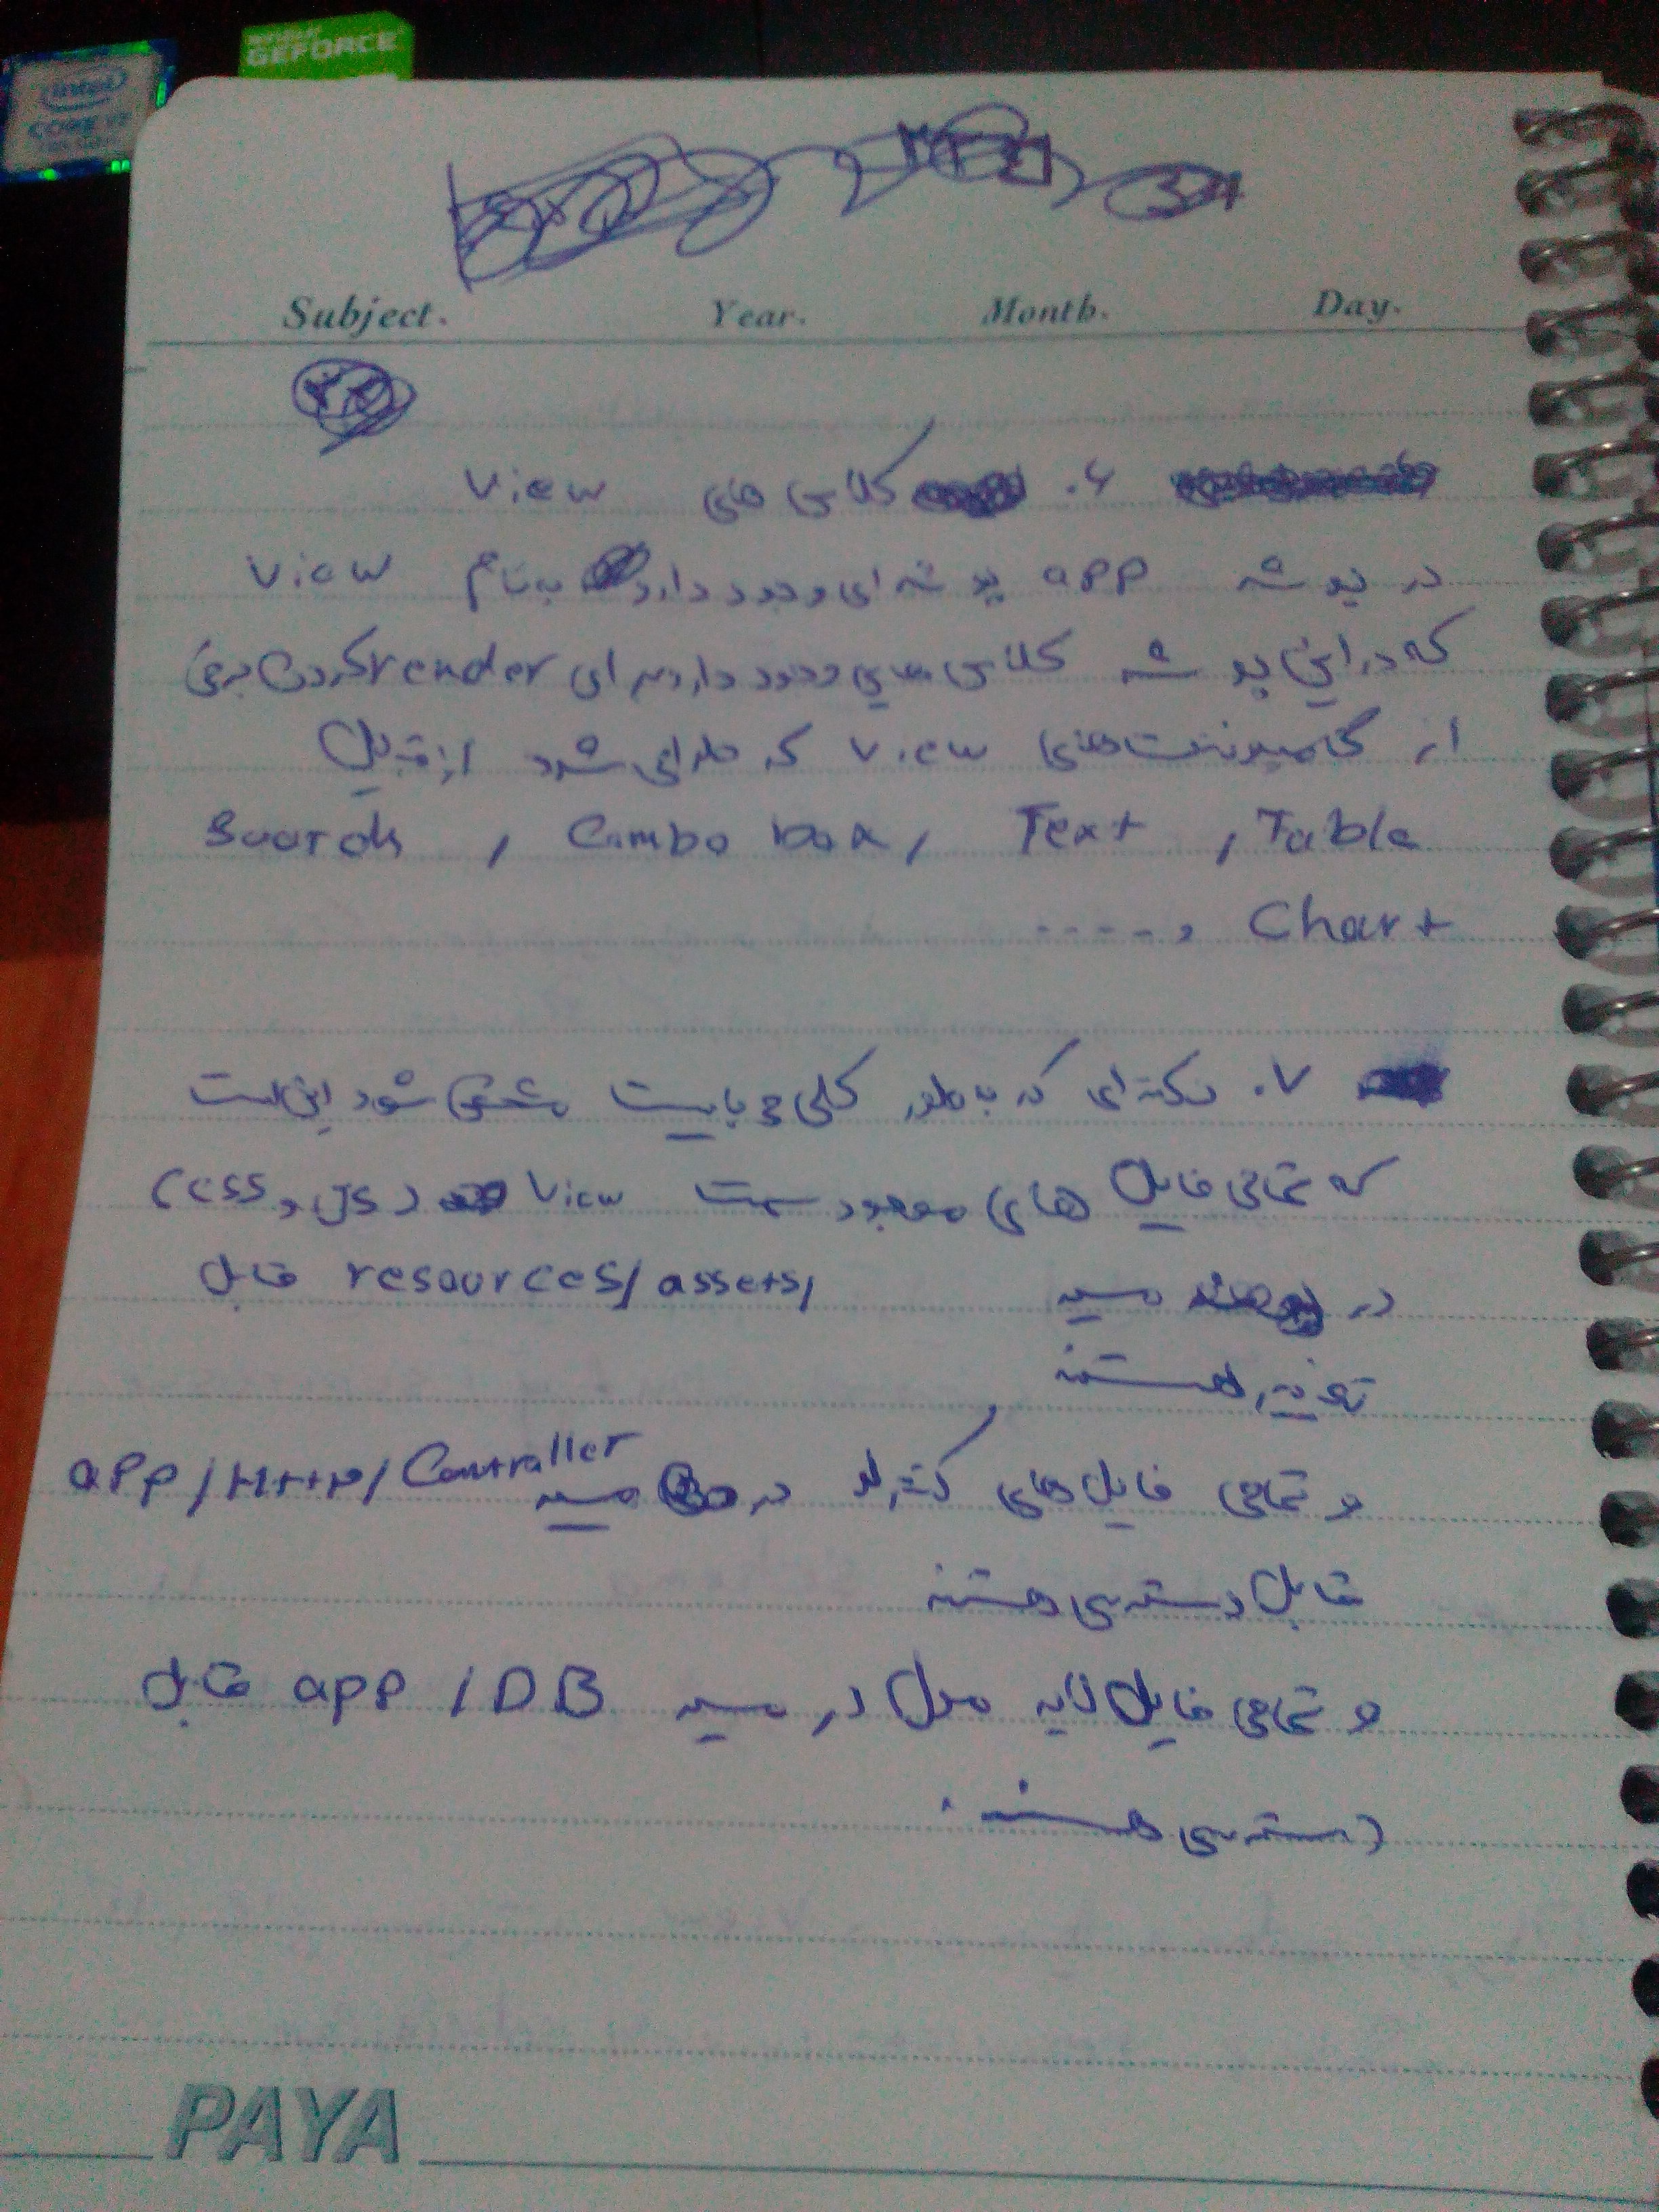 GEFORCE
intel
CORE i7
Subject. Year. Month. Day.
۶. کلاس های View
در پوشه app پوشه ای وجود دارد به نام View
که در این پوشه کلاس هایی وجود دارد برای render کردن برخی
از کامپوننت های View که طراحی شود از قبیل
Boards , Combo box , Text , Table
Chart , ....
۷. نکته ای که به طور کلی می بایست مشخص شود این است
که تمامی فایل های موجود سمت View (js و css)
در مسیر resources/assets/ قابل
تغییر هستند
و تمامی فایل های کنترلر در مسیر app/Http/Controller
قابل دسترسی هستند
و تمامی فایل لایه مدل در مسیر app/DB قابل
دسترسی هستند.
PAYA